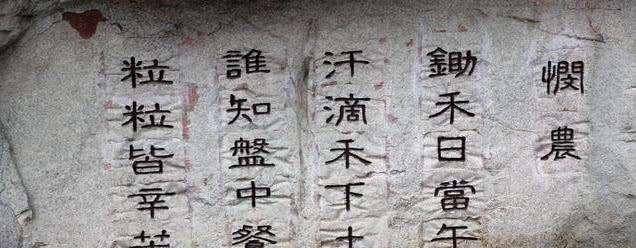 憫農
鋤禾日當午
汗滴禾下土
誰知盤中餐
粒粒皆辛苦